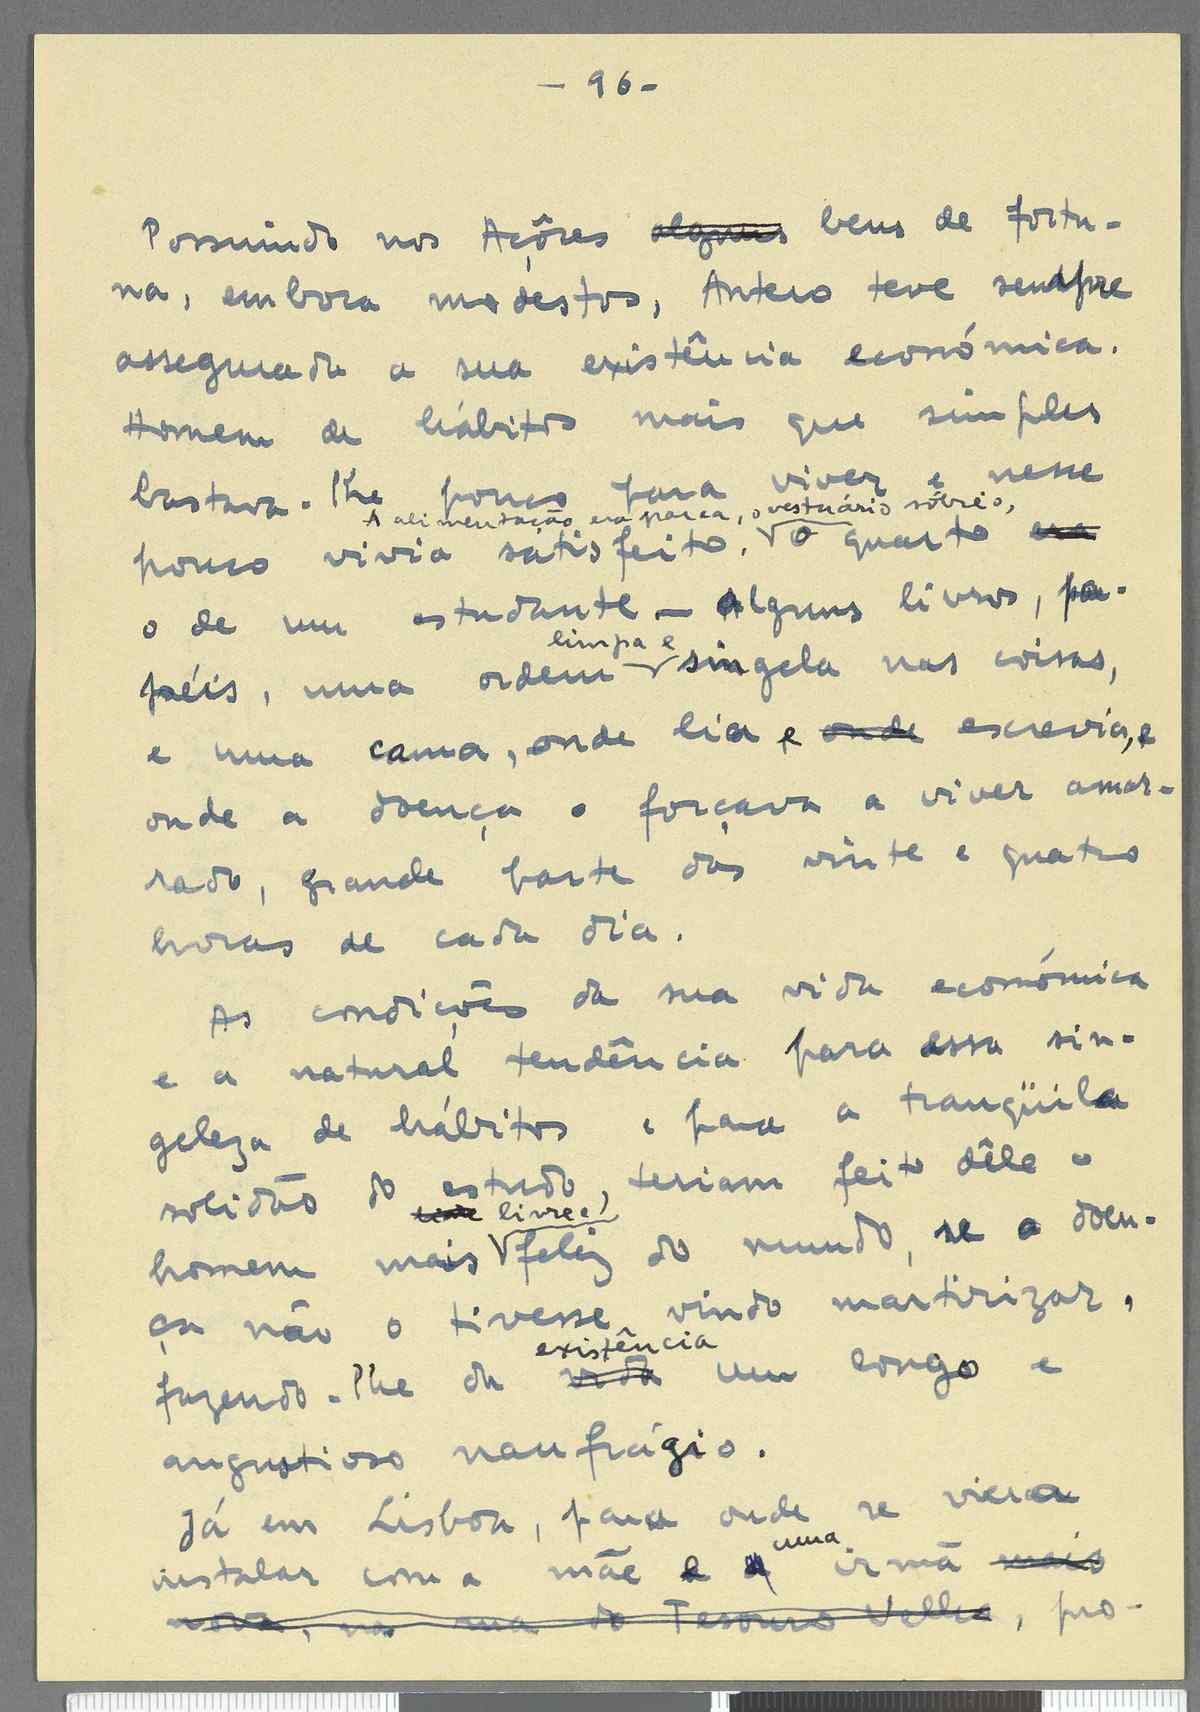 - 96 -
Possuindo nos Açôres alguns bens de fortu-
na, embora modestos, Antero teve sempre
assegurada a sua existência económica.
Homem de hábitos mais que simples
bastava-lhe pouco para viver e nesse
A alimentação era parca, o vestuário sóbrio,
pouco vivia satisfeito. O quarto era
o de um estudante - Alguns livros, pa-
limpa e
péis, uma ordem singela nas coisas,
e uma cama, onde lia e onde escrevia, e
onde a doença o forçava a viver amar-
rado, grande parte das vinte e quatro
horas de cada dia.
As condições da sua vida económica
e a natural tendência para essa sin-
geleza de hábitos e para a tranqüila
solidão do estudo, teriam feito dêle o
livre e
homem mais feliz do mundo, se a doen-
ça não o tivesse vindo martirizar,
existência
fazendo-lhe da vida um longo e
angustioso naufrágio.
Já em Lisboa, para onde se viera
uma
instalar com a mãe e a irmã mais
nova, na rua do Tesouro Velho, pro-